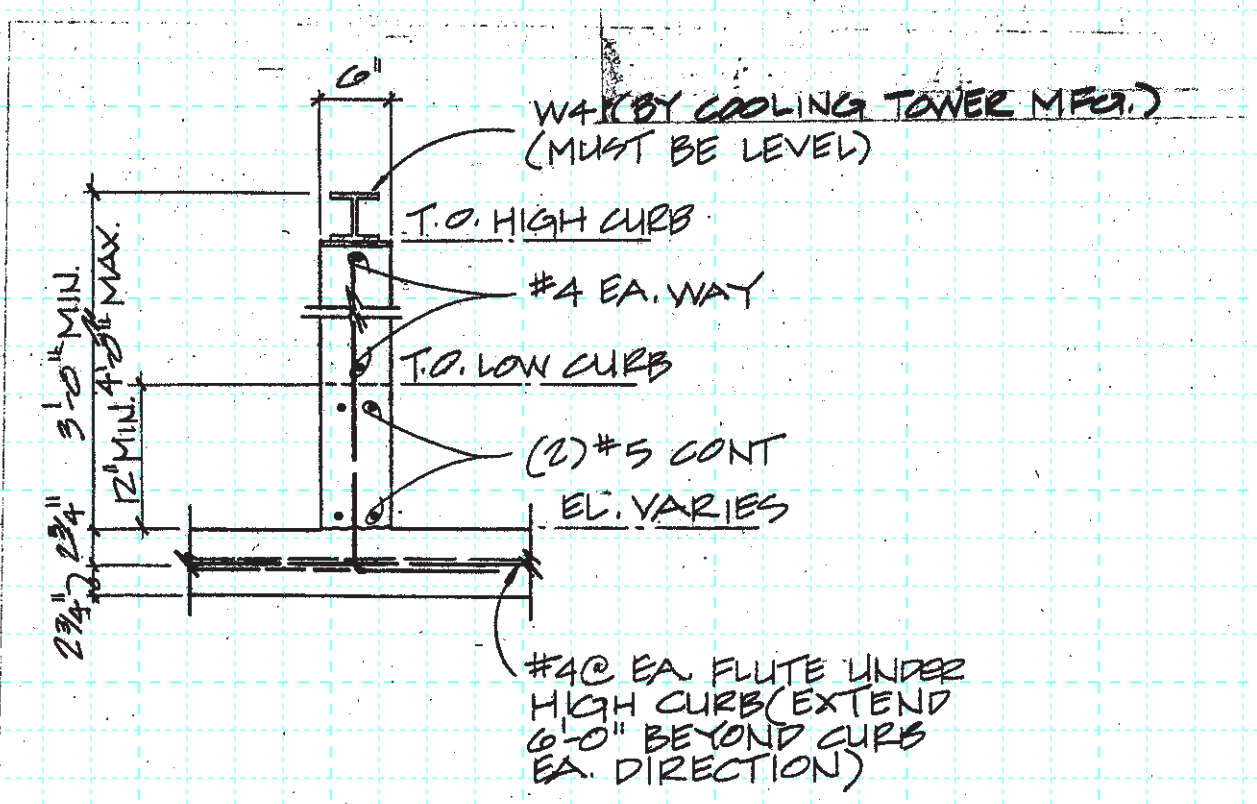 6"
W4 (BY COOLING TOWER MFG.)
(MUST BE LEVEL)
T.O. HIGH CURB
#4 EA. WAY
T.O. LOW CURB
(2) #5 CONT
EL. VARIES
3'-0" MIN.
MAX.
12" MIN.
2 3/4"
2 3/4"
#4@ EA. FLUTE UNDER
HIGH CURB (EXTEND
6'-0" BEYOND CURB
EA. DIRECTION)